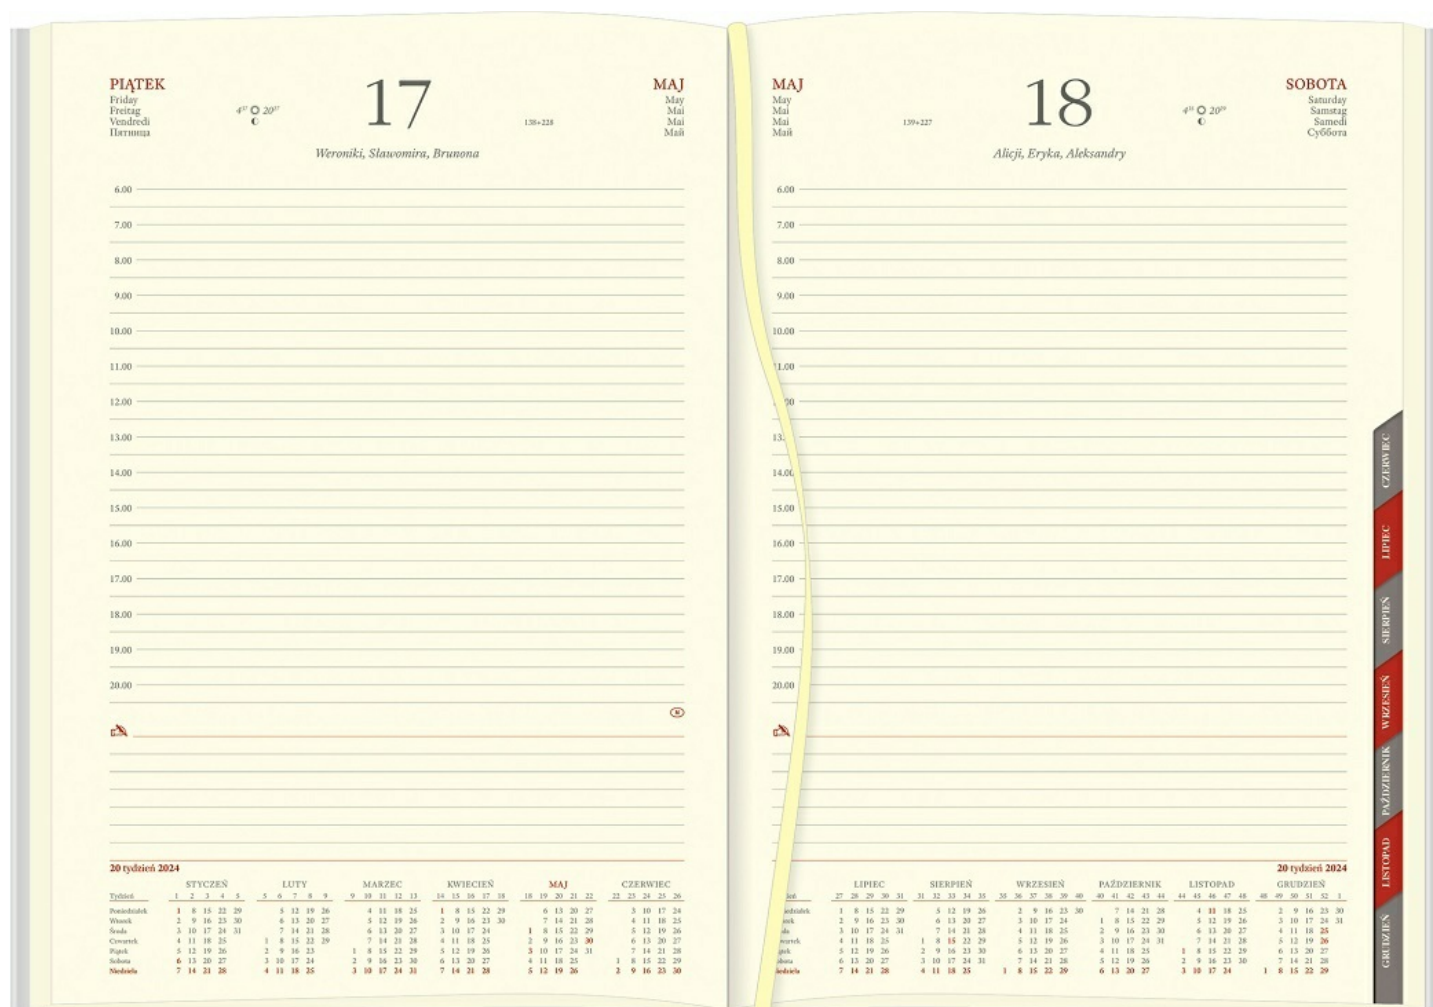 PIĄTEK
Friday
Freitag
Vendredi
Пятница
4³⁷ 20²⁷
17
138+228
MAJ
May
Mai
Mai
Май
Weroniki, Sławomira, Brunona
6.00
7.00
8.00
9.00
10.00
11.00
12.00
13.00
14.00
15.00
16.00
17.00
18.00
19.00
20.00
20 tydzień 2024
STYCZEŃ LUTY MARZEC KWIECIEŃ MAJ CZERWIEC
Tydzień 1 2 3 4 5 5 6 7 8 9 9 10 11 12 13 14 15 16 17 18 18 19 20 21 22 22 23 24 25 26
Poniedziałek 1 8 15 22 29 5 12 19 26 4 11 18 25 1 8 15 22 29 6 13 20 27 3 10 17 24
Wtorek 2 9 16 23 30 6 13 20 27 5 12 19 26 2 9 16 23 30 7 14 21 28 4 11 18 25
Środa 3 10 17 24 31 7 14 21 28 6 13 20 27 3 10 17 24 1 8 15 22 29 5 12 19 26
Czwartek 4 11 18 25 1 8 15 22 29 7 14 21 28 4 11 18 25 2 9 16 23 30 6 13 20 27
Piątek 5 12 19 26 2 9 16 23 1 8 15 22 29 5 12 19 26 3 10 17 24 31 7 14 21 28
Sobota 6 13 20 27 3 10 17 24 2 9 16 23 30 6 13 20 27 4 11 18 25 1 8 15 22 29
Niedziela 7 14 21 28 4 11 18 25 3 10 17 24 31 7 14 21 28 5 12 19 26 2 9 16 23 30
MAJ
May
Mai
Mai
Май
139+227
18
20²⁹
SOBOTA
Saturday
Samstag
Samedi
Суббота
Alicji, Eryka, Aleksandry
6.00
7.00
8.00
9.00
10.00
11.00
14.00
15.00
16.00
17.00
18.00
19.00
20.00
20 tydzień 2024
LIPIEC SIERPIEŃ WRZESIEŃ PAŹDZIERNIK LISTOPAD GRUDZIEŃ
27 28 29 30 31 31 32 33 34 35 35 36 37 38 39 40 40 41 42 43 44 44 45 46 47 48 48 49 50 51 52 1
1 8 15 22 29 5 12 19 26 2 9 16 23 30 7 14 21 28 4 11 18 25 2 9 16 23 30
2 9 16 23 30 6 13 20 27 3 10 17 24 1 8 15 22 29 5 12 19 26 3 10 17 24 31
3 10 17 24 31 7 14 21 28 4 11 18 25 2 9 16 23 30 6 13 20 27 4 11 18 25
4 11 18 25 1 8 15 22 29 5 12 19 26 3 10 17 24 31 7 14 21 28 5 12 19 26
5 12 19 26 2 9 16 23 30 6 13 20 27 4 11 18 25 1 8 15 22 29 6 13 20 27
6 13 20 27 3 10 17 24 31 7 14 21 28 5 12 19 26 2 9 16 23 30 7 14 21 28
7 14 21 28 4 11 18 25 1 8 15 22 29 6 13 20 27 3 10 17 24 1 8 15 22 29
CZERWIEC
LIPIEC
SIERPIEŃ
WRZESIEŃ
PAŹDZIERNIK
LISTOPAD
GRUDZIEŃ